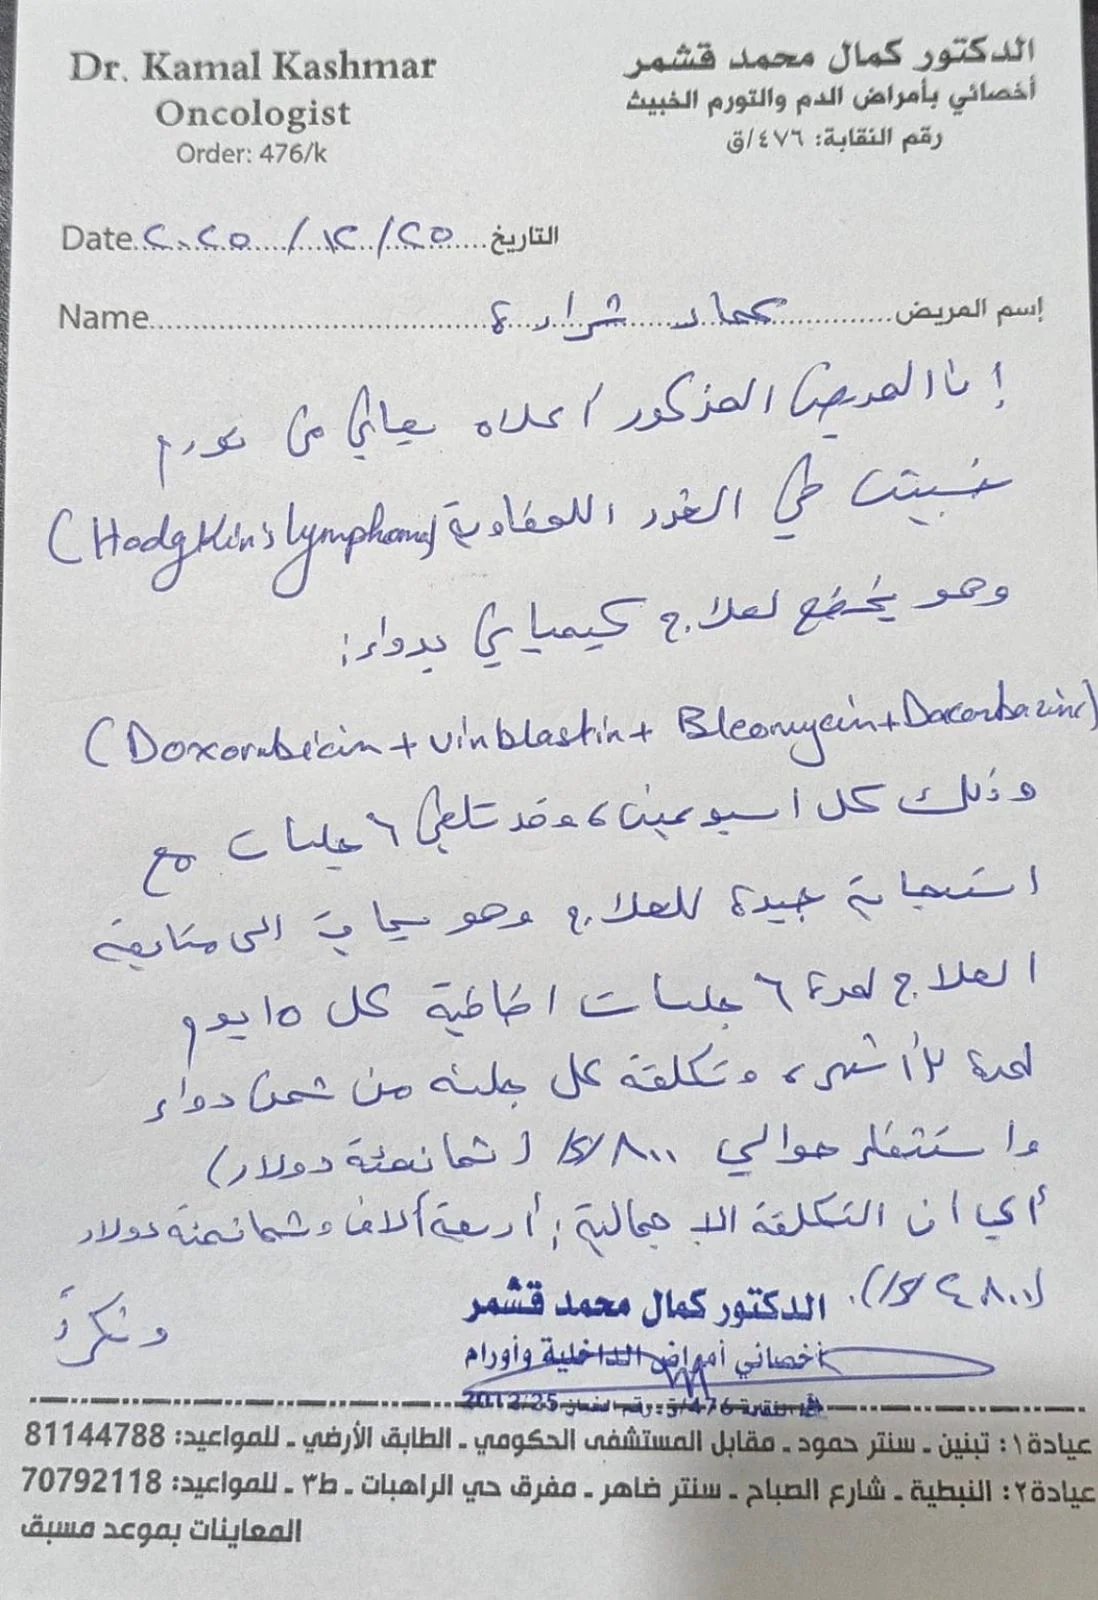 Dr. Kamal Kashmar
Oncologist
Order: 476/k
الدكتور كمال محمد قشمر
أخصائي بأمراض الدم والتورم الخبيث
رقم النقابة: ٤٧٦/ق
Date ٢٠٢٥ / ١٢ / ٢٥ التاريخ
Name شرارة إسم المريض
إن المريض المذكور أعلاه يعاني من تورم
خبيث في الغدد اللمفاوية (Hodgkin's lymphoma)
وهو يخضع لعلاج كيميائي بدواء:
(Doxorubicin + vinblastin + Bleomycin + Dacarbazine)
وذلك كل اسبوعين، وقد تلقى ٦ جلسات مع
استجابة جيدة للعلاج وهو بحاجة الى متابعة
العلاج لمدة ٦ جلسات اضافية كل ١٥ يوم
لمدة ٣ أشهر، وتكلفة كل جلسة من ثمن دواء
واستشفاء حوالي ٨٠٠/$/ (ثمانمئة دولار)
أي ان التكلفة الاجمالية: أربعة آلاف وثمانمئة دولار
(٤٨٠٠/$/).
وشكراً
الدكتور كمال محمد قشمر
أخصائي أمراض الداخلية وأورام
عيادة١: تبنين ـ سنتر حمود ـ مقابل المستشفى الحكومي ـ الطابق الأرضي ـ للمواعيد: 81144788
عيادة٢: النبطية ـ شارع الصباح ـ سنتر ضاهر ـ مفرق حي الراهبات ـ ط٣ ـ للمواعيد: 70792118
المعاينات بموعد مسبق